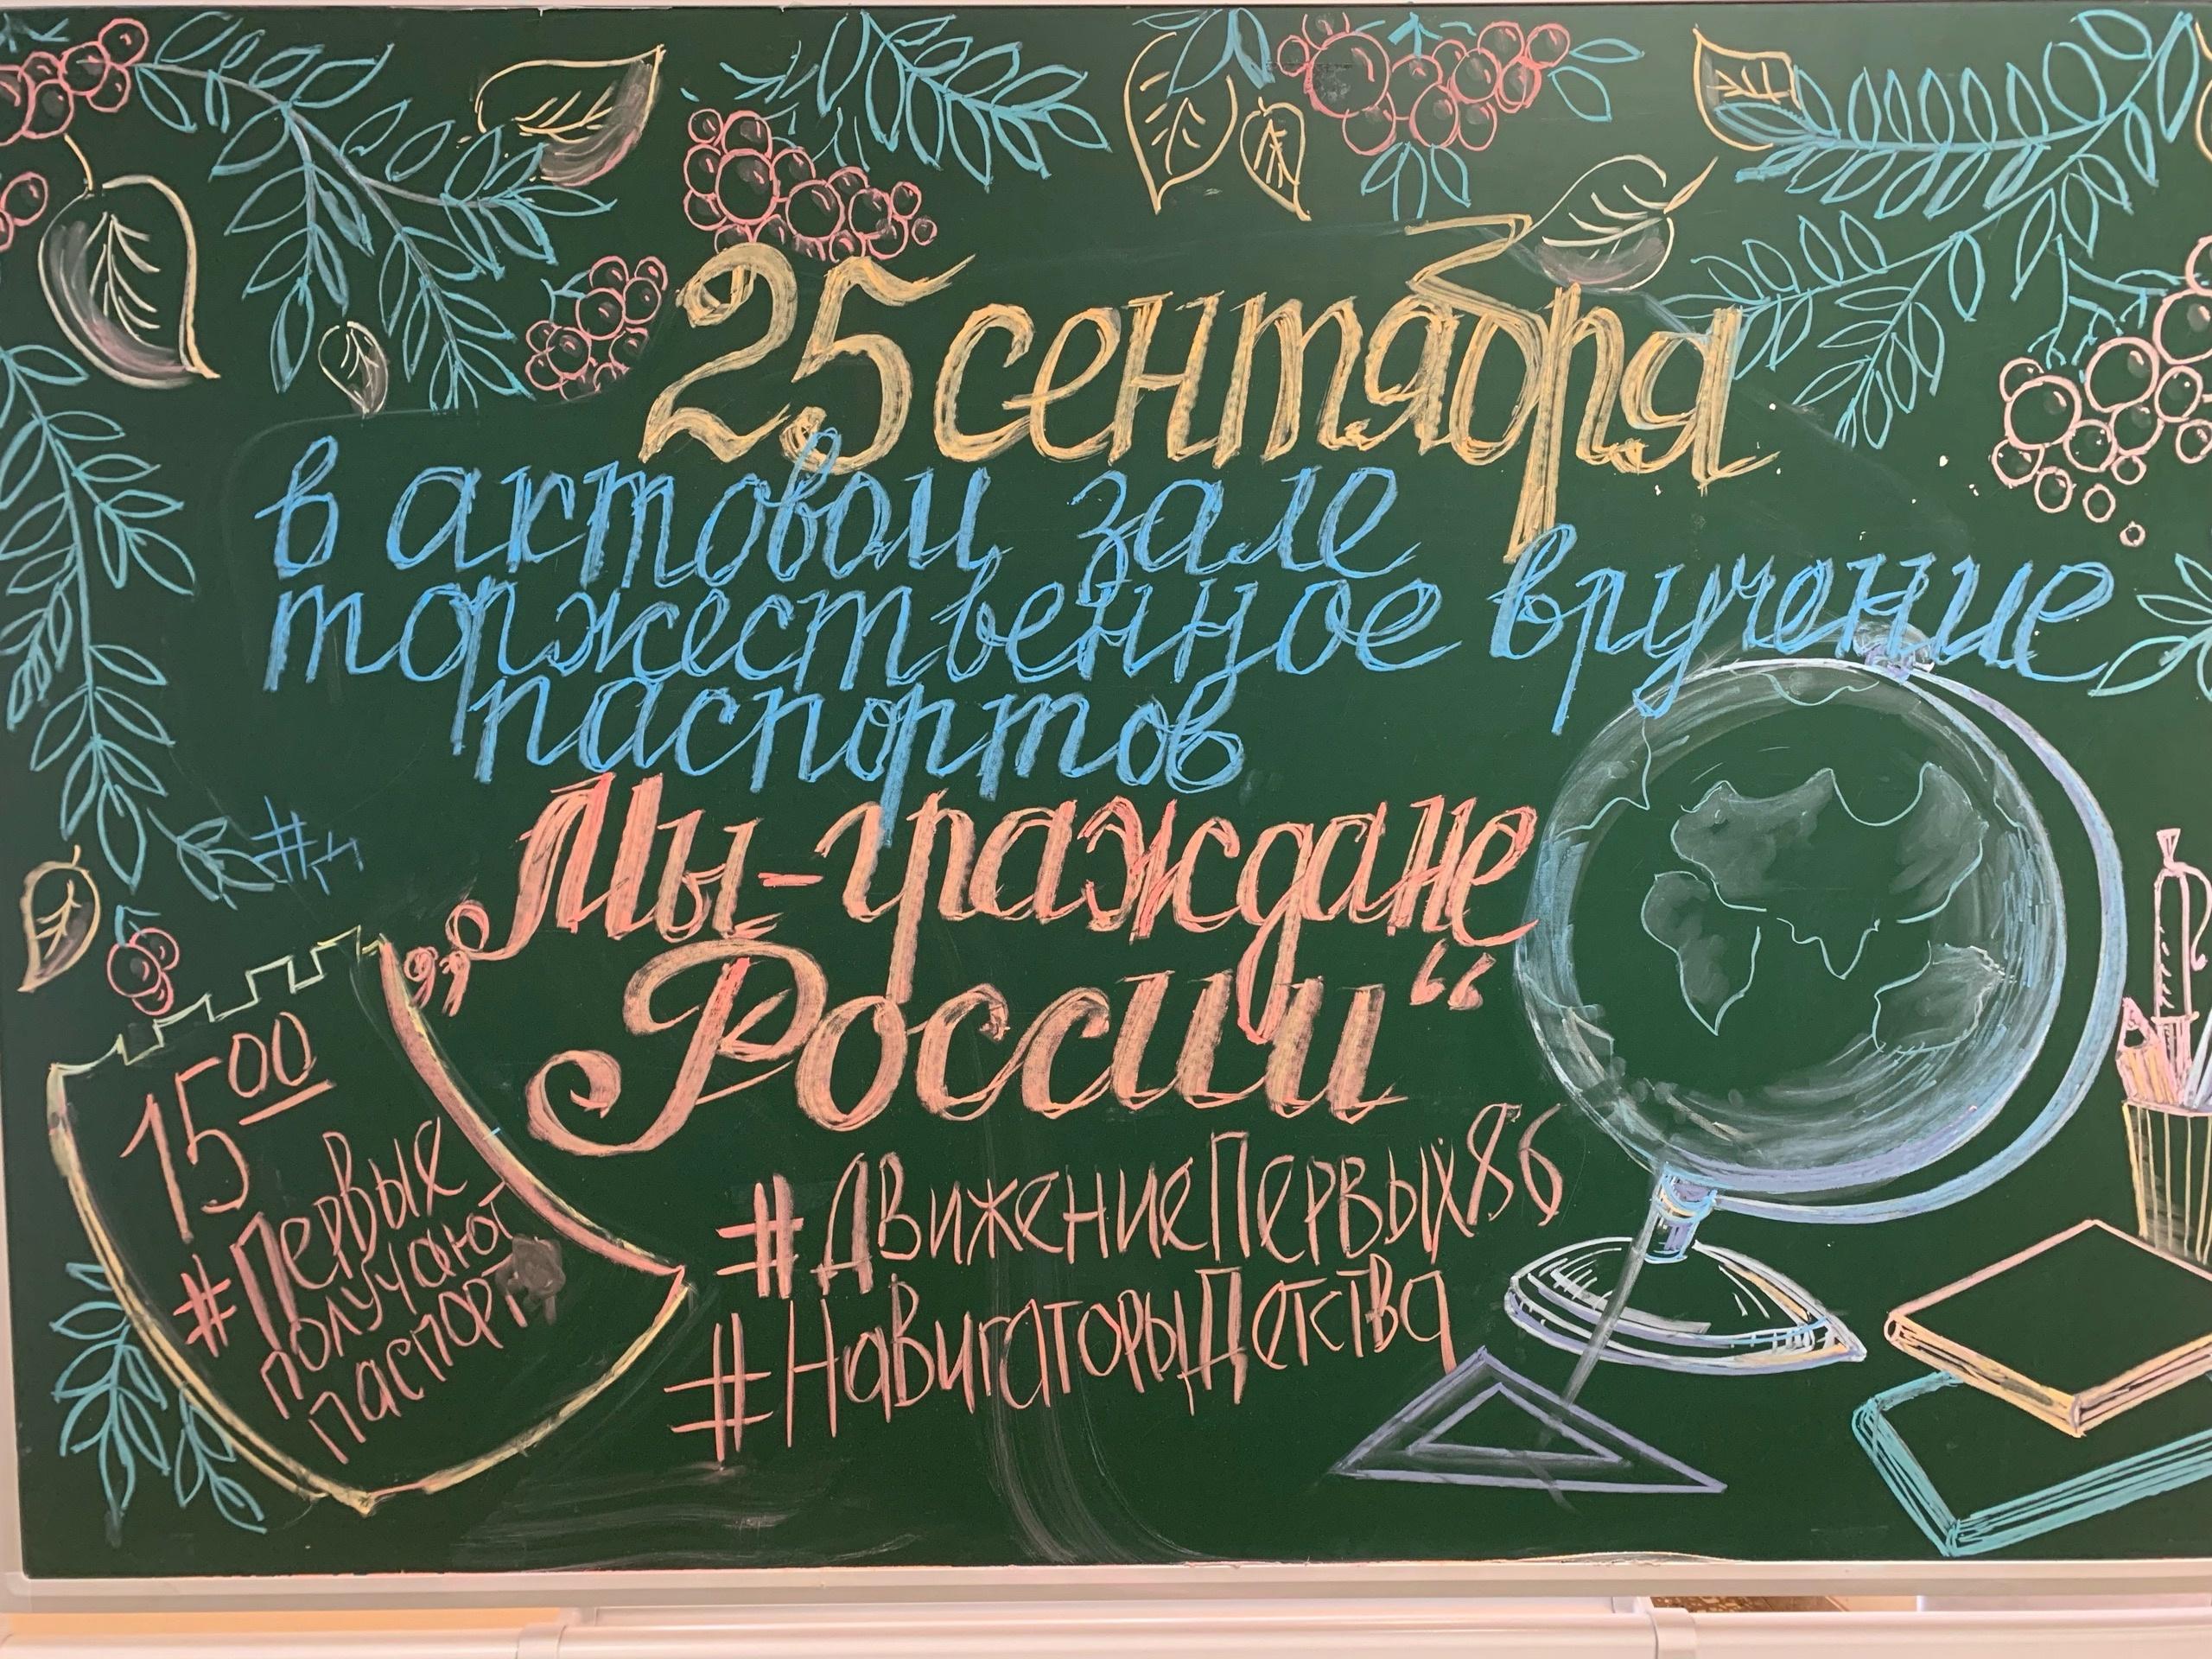 25 сентября
в актовом зале
торжественное вручение
паспортов
„Мы-граждане
России“
15 00
#Первых
получают
паспорт
#ДвижениеПервых86
#НавигаторыДетства